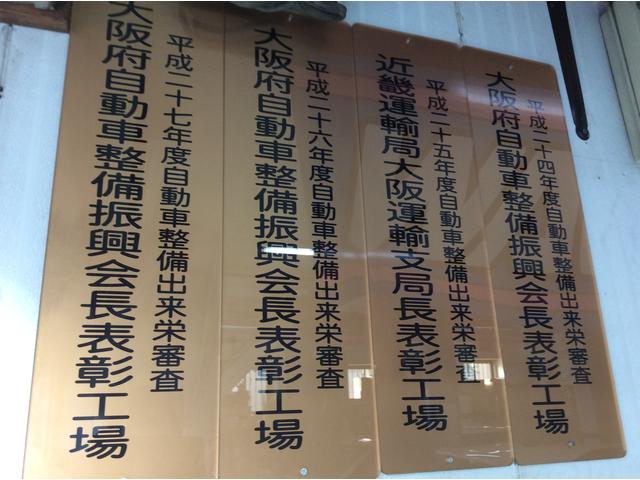 平成二十四年度自動車整備出来栄審査
大阪府自動車整備振興会長表彰工場
平成二十五年度自動車整備出来栄審査
近畿運輸局大阪運輸支局長表彰工場
平成二十六年度自動車整備出来栄審査
大阪府自動車整備振興会長表彰工場
平成二十七年度自動車整備出来栄審査
大阪府自動車整備振興会長表彰工場